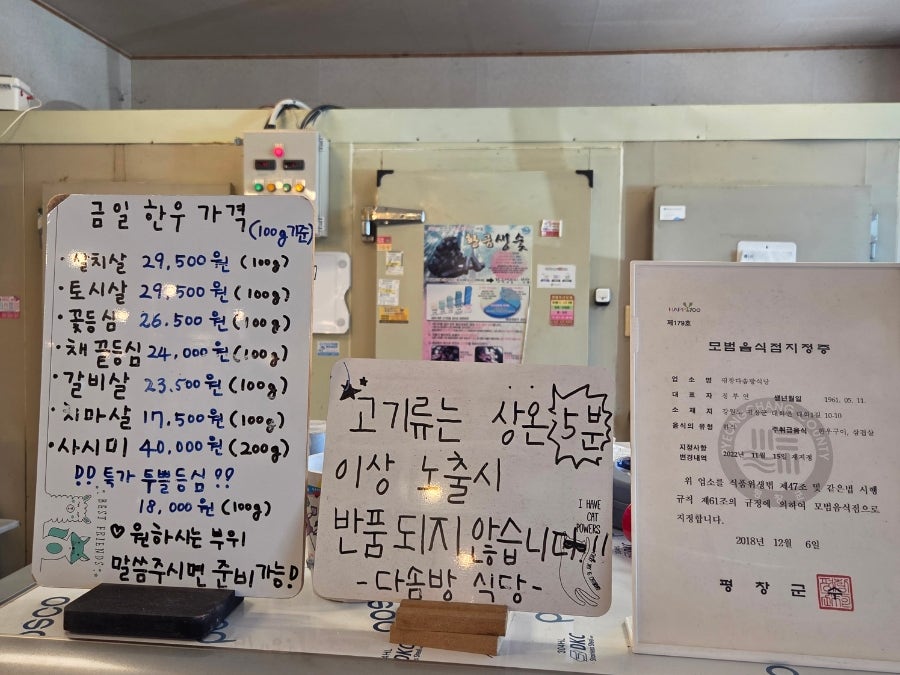 금일 한우 가격
(100g기준)
살치살 29,500원 (100g)
· 토시살 29,500원 (100g)
· 꽃등심 26.500원 (100g)
· 채끝등심 24,000원 (100g)
· 갈비살 23.500원 (100g)
· 치마살 17,500원 (100g)
· 사시미 40,000원 (200g)
!! 특가 투뿔등심 !!
18,000원 (100g)
♡ 원하시는 부위
말씀주시면 준비가능!
BEST FRIENDS
고기류는 상온 5분
이상 노출시
반품되지 않습니다!!
-다솜방 식당-
I HAVE
CAT
POWERS
생숯
HAPPY700
제179호
모범음식점지정증
업 소 명 평창다솜방식당
대 표 자
생년월일 1961. 05. 11.
소 재 지 강원도 평창군 대화면
음식의 유형 한식 주취급음식 한우구이, 삼겹살
지정사항
변경내역 2022년 11월 15일 재지정
위 업소를 식품위생법 제47조 및 같은법 시행
규칙 제61조의 규정에 의하여 모범음식점으로
지정합니다.
2018년 12월 6일
평 창 군 수
posco
304HL
DKC